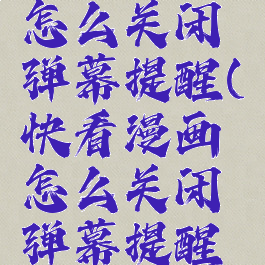 怎么关闭
弹幕提醒(
快看漫画
怎么关闭
弹幕提醒